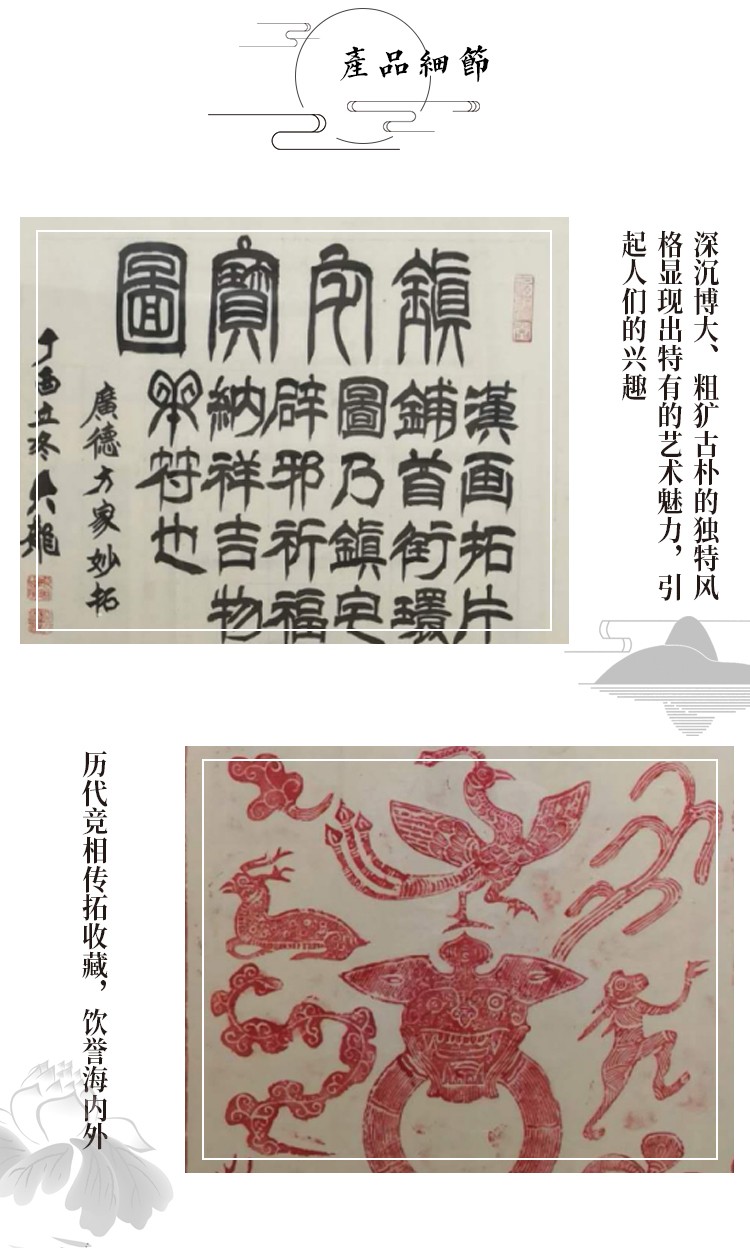 產品細節
深沉博大、粗犷古朴的独特风
格显现出特有的艺术魅力，引
起人们的兴趣
鎮宅寶圖
漢画拓片
鋪首銜環
圖乃鎮宅
辟邪祈福
納祥吉物
符也
廣德方家妙拓
丁酉立冬
历代竞相传拓收藏，饮誉海内外